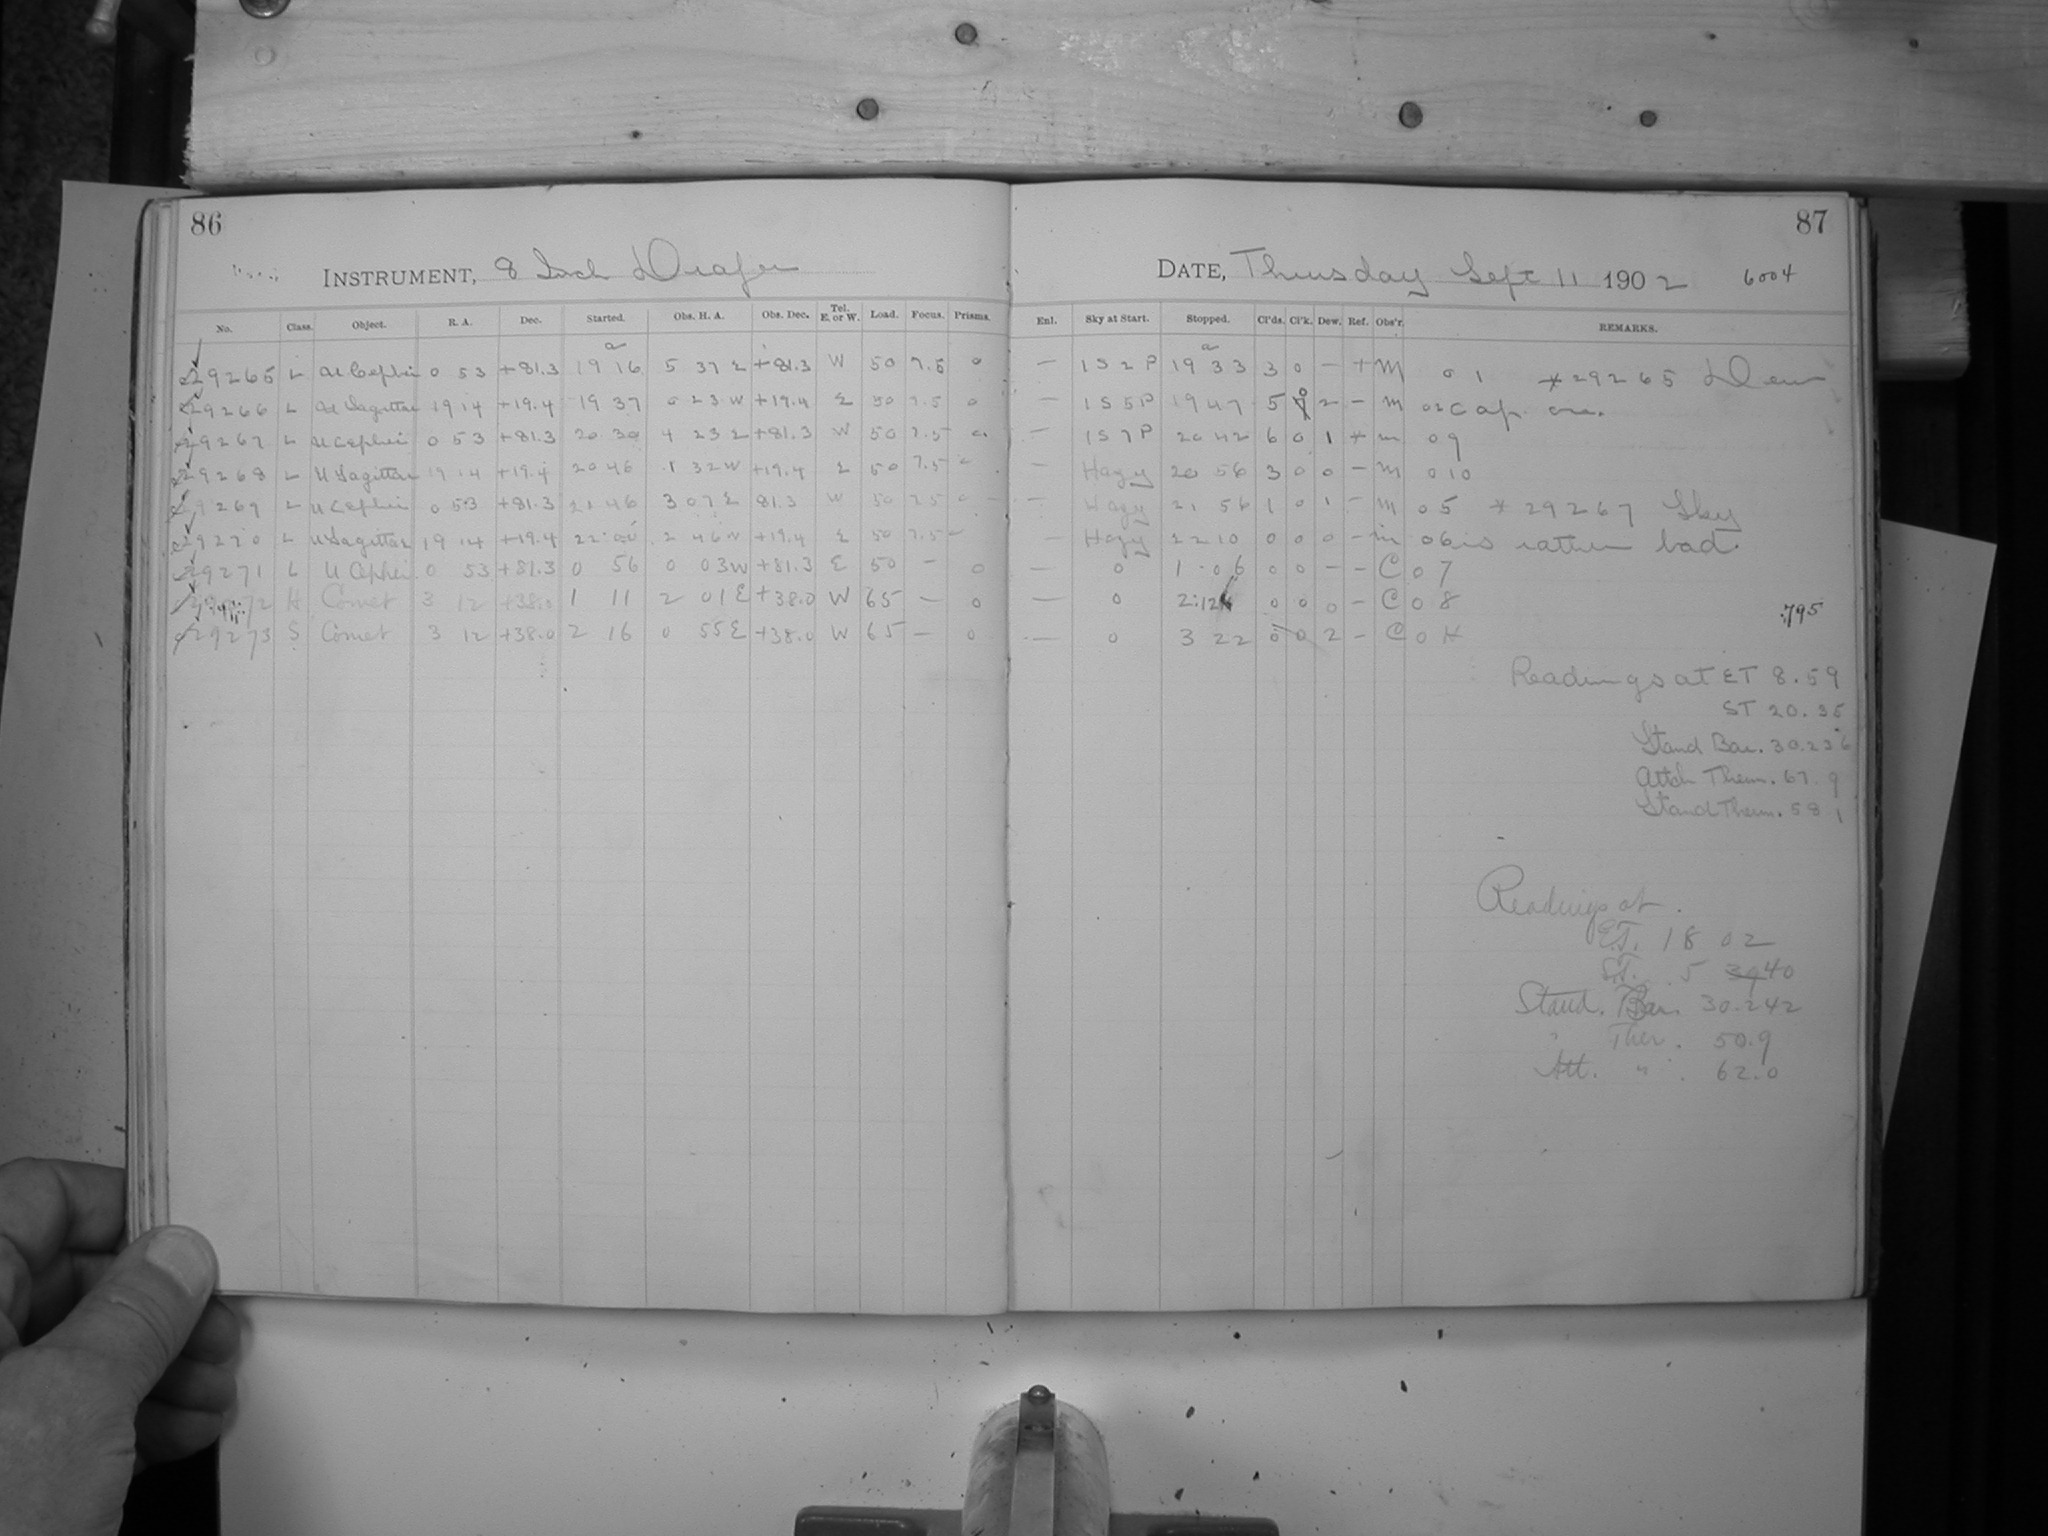 86
INSTRUMENT, 8 Inch Draper
No. Class. Object. R. A. Dec. Started. Obs. H. A. Obs. Dec. Tel. E. or W. Load. Focus. Prisms.
29265 L U Cephei 0 53 +81.3 19 16 5 37 E +81.3 W 50 7.5 0
29266 L U Sagittae 19 14 +19.4 19 37 0 23 W +19.4 E 50 7.5 0
29267 L U Cephei 0 53 +81.3 20 30 4 23 E +81.3 W 50 7.5 0
29268 L U Sagittae 19 14 +19.4 20 46 1 32 W +19.4 E 50 7.5
29269 L U Cephei 0 53 +81.3 21 46 3 07 E 81.3 W 50 7.5 0
29270 L U Sagittae 19 14 +19.4 22 00 2 46 W +19.4 E 50 7.5
29271 L U Cephei 0 53 +81.3 0 56 0 03 W +81.3 E 50 – 0
29272 H Comet 3 12 +38.0 1 11 2 01 E +38.0 W 65 – 0
29273 S Comet 3 12 +38.0 2 16 0 55 E +38.0 W 65 – 0
87
DATE, Thursday Sept 11 1902 6004
Enl. Sky at Start. Stopped. Cl'ds. Cl'k. Dew. Ref. Obs'r. REMARKS.
– 1S2P 19 33 3 0 – + M 01 *29265 Dew
– 1S5P 19 47 5 0 2 – M 02 cap on.
– 1S7P 20 42 6 0 1 + M 09
– Hazy 20 56 3 0 0 – M 010
– Hazy 21 56 1 0 1 – M 05 *29267 Sky
– Hazy 22 10 0 0 0 – M 06 is rather bad.
– 0 1 06 0 0 – – C 07
– 0 2:12 0 0 0 – C 08
795
– 0 3 22 0 0 2 – C 0
Readings at ET 8.59
ST 20.35
Stand Bar. 30.236
Attch Therm. 67.9
Stand Therm. 58.1
Readings at.
E.T. 18 02
S.T. 5 39 40
Stand. Bar. 30.242
" Ther. 50.9
Att. " . 62.0